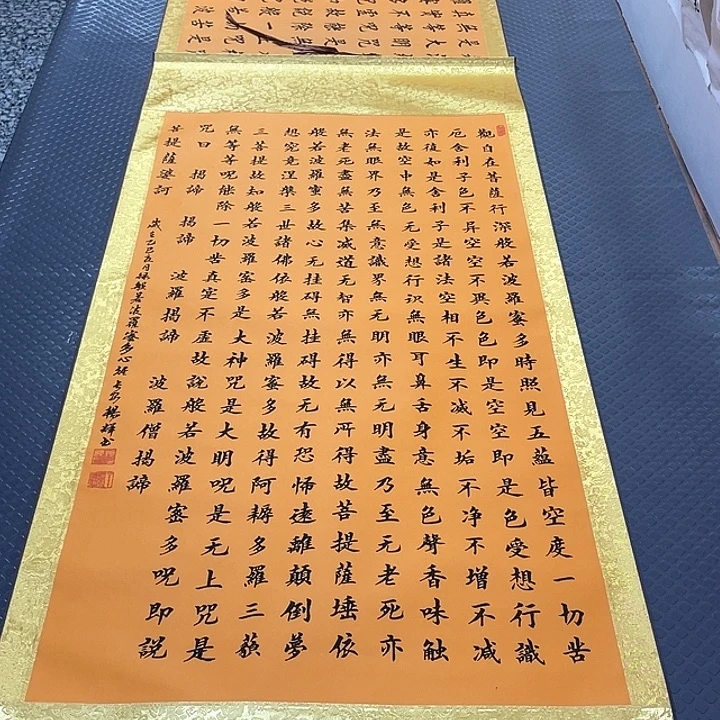 觀自在菩薩行深般若波羅蜜多時照見五蘊皆空度一切苦
厄舍利子色不異空空不異色色即是空空即是色受想行識
亦復如是舍利子是諸法空相不生不减不垢不净不增不减
是故空中無色无受想行识無眼耳鼻舌身意無色聲香味触
法無眼界乃至無意識界無无明亦無无明盡乃至无老死亦
無老死盡無苦集减道无智亦無得以無所得故菩提薩埵依
般若波羅蜜多故心无挂碍無挂碍故无有恐怖遠離顛倒夢
想究竟涅槃三世諸佛依般若波羅蜜多故得阿耨多羅三藐
三菩提故知般若波羅蜜多是大神咒是大明呪是无上咒是
無等等呪能除一切苦真实不虚故説般若波羅蜜多呪即説
咒曰 揭諦 揭諦 波羅揭諦 波羅僧揭諦
菩提薩婆訶
乙巳 月 般若波羅蜜多心經 書